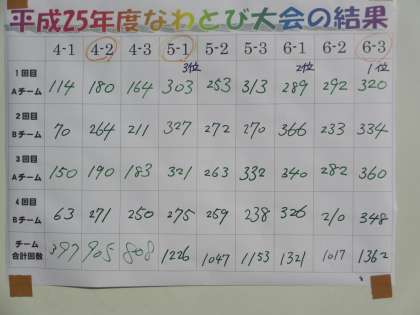 平成25年度なわとび大会の結果
4-1 4-2 4-3 5-1 5-2 5-3 6-1 6-2 6-3
3位 2位 1位
1回目
Aチーム 114 180 164 303 253 313 289 292 320
2回目
Bチーム 70 264 211 327 272 270 366 233 334
3回目
Aチーム 150 190 183 321 263 332 340 282 360
4回目
Bチーム 63 271 250 275 259 238 326 210 348
チーム
合計回数 397 905 808 1226 1047 1153 1321 1017 1362